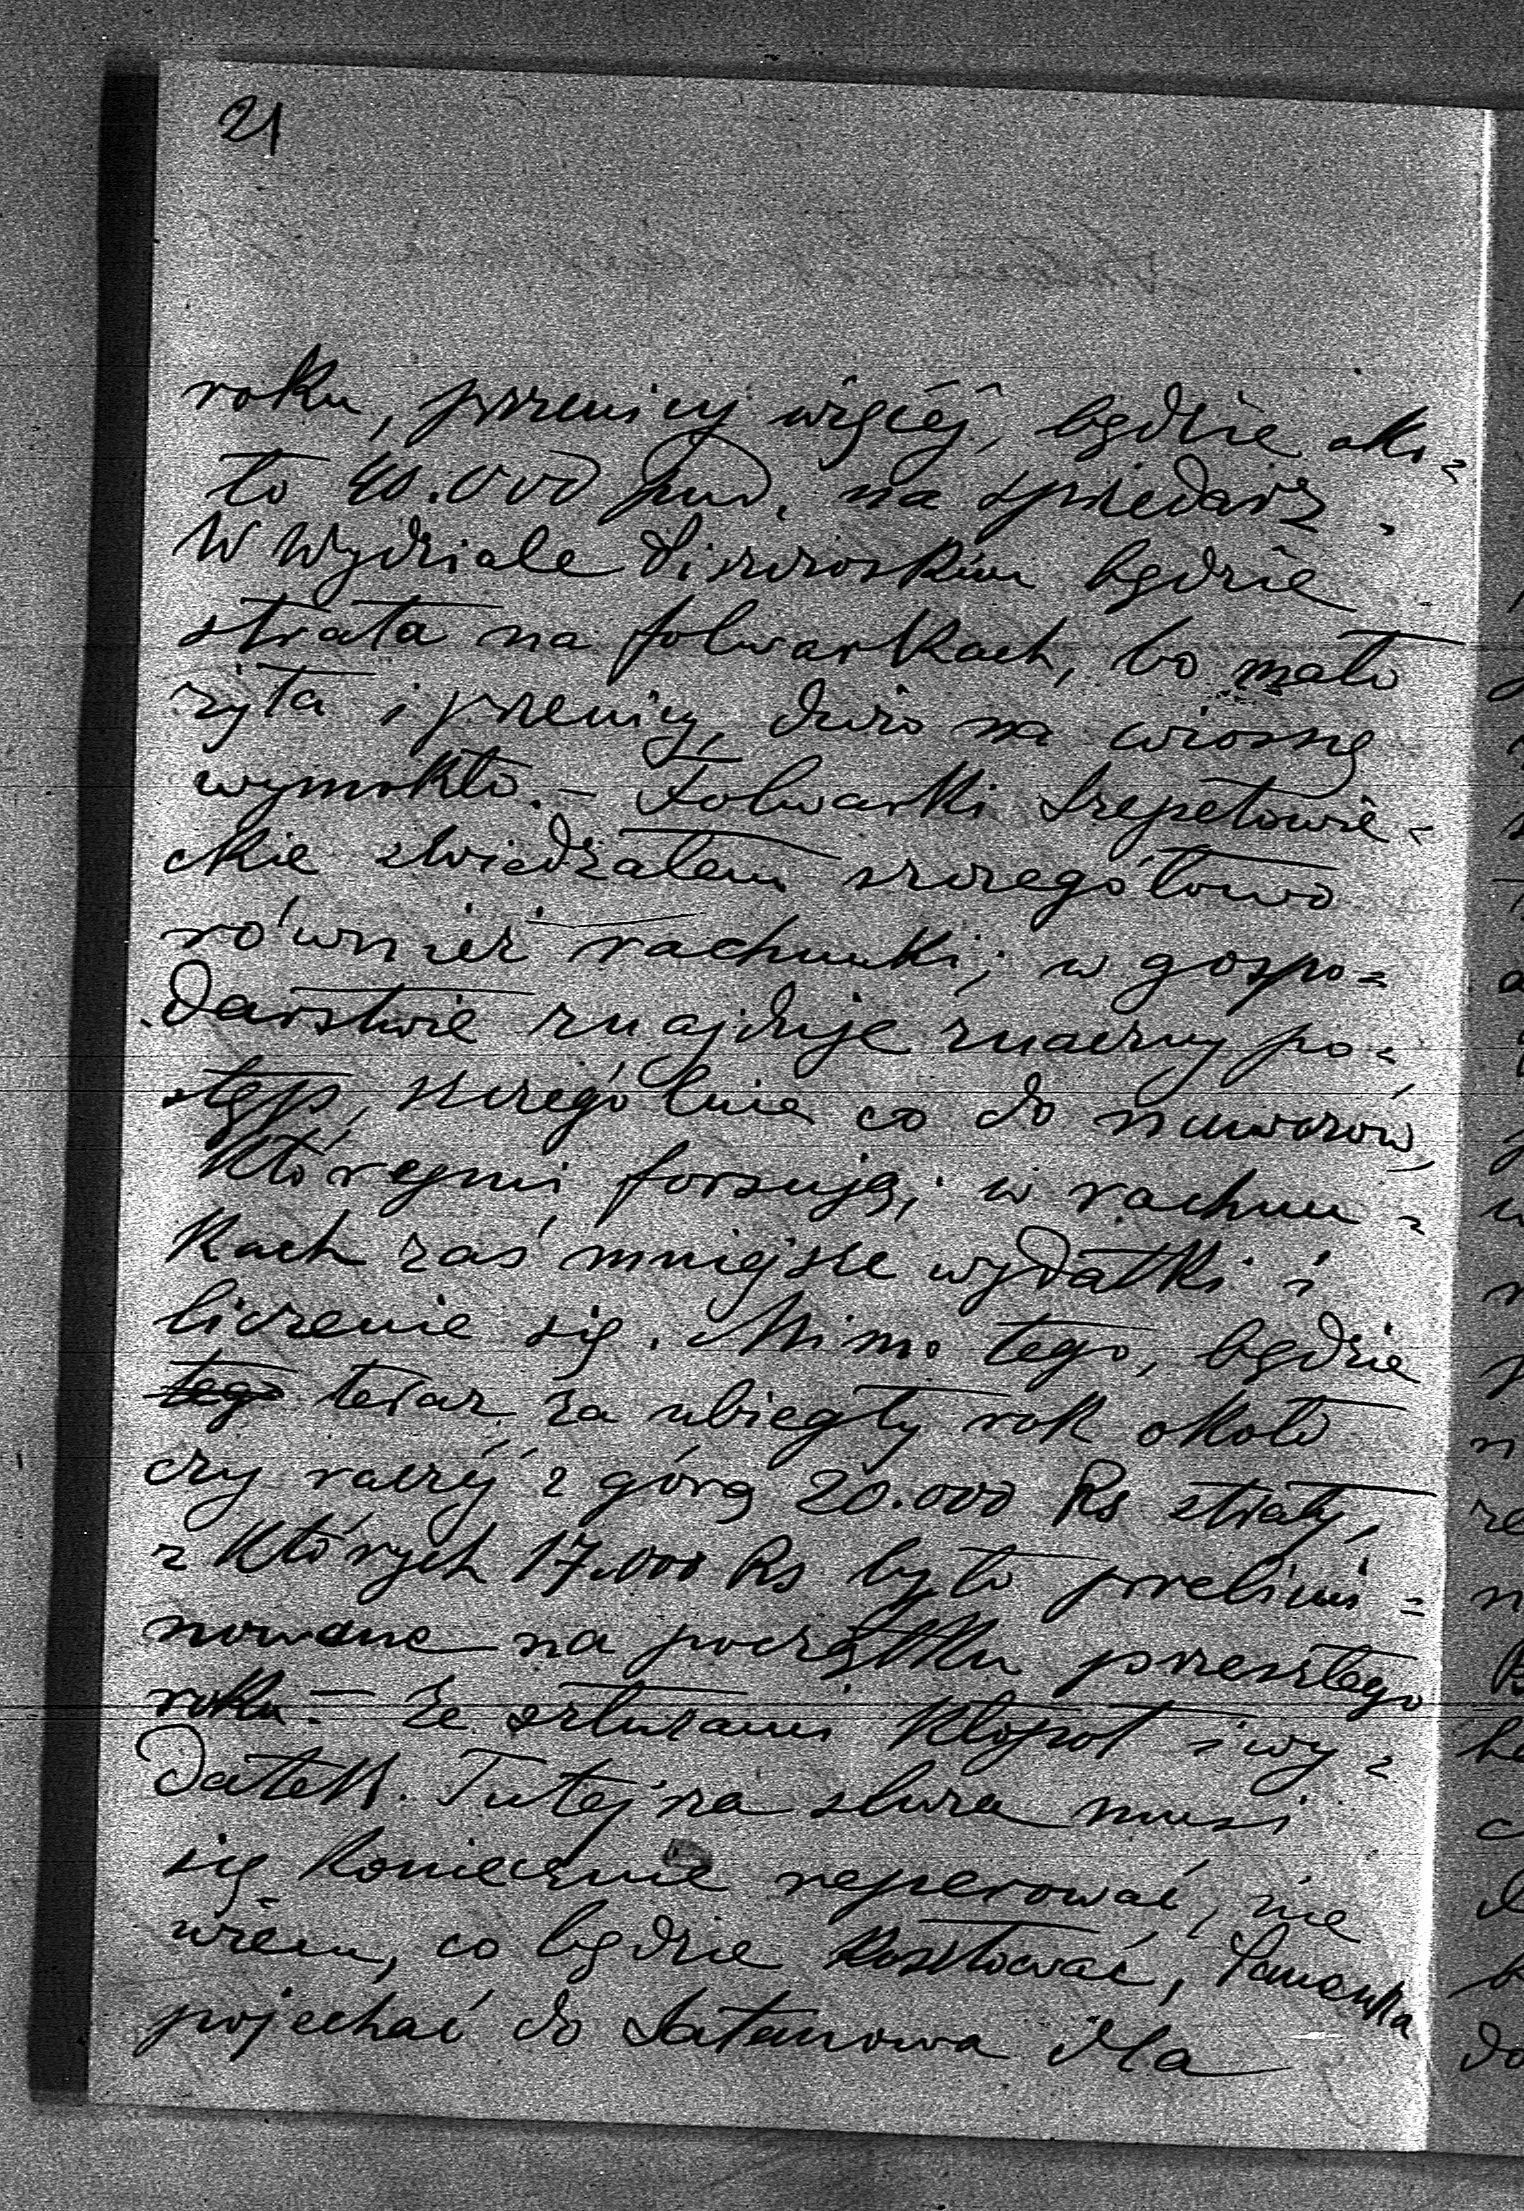 21
roku, pszenicy więcéj, będzie oko=
ło 40.000 pud. na sprzedaż.
W Wydziale będzie
strata na folwarkach, bo mało
żyta i pszenicy, dużo na wiosnę
wymokło. – Folwarki Szepetowie=
ckie zwiedzałem szczegółowo
również rachunki; w gospo=
darstwie znajduję znaczny po=
stęp, szczególnie co do nawozów,
któremi forsują; w rachun=
kach zaś mniejsze wydatki i
liczenie się. Mimo tego, będzie
tego teraz za ubiegły rok około
czy raczéj z górą 20.000 Rs straty,
z których 17.000 Rs było prelimi=
nowane na początku przeszłego
roku. – Ze szluzami kłopot i wy=
datek. Tutejsza szluza musi
się koniecznie reperować, nie
wiem, co będzie kosztować,
pojechać do Satanowa dla